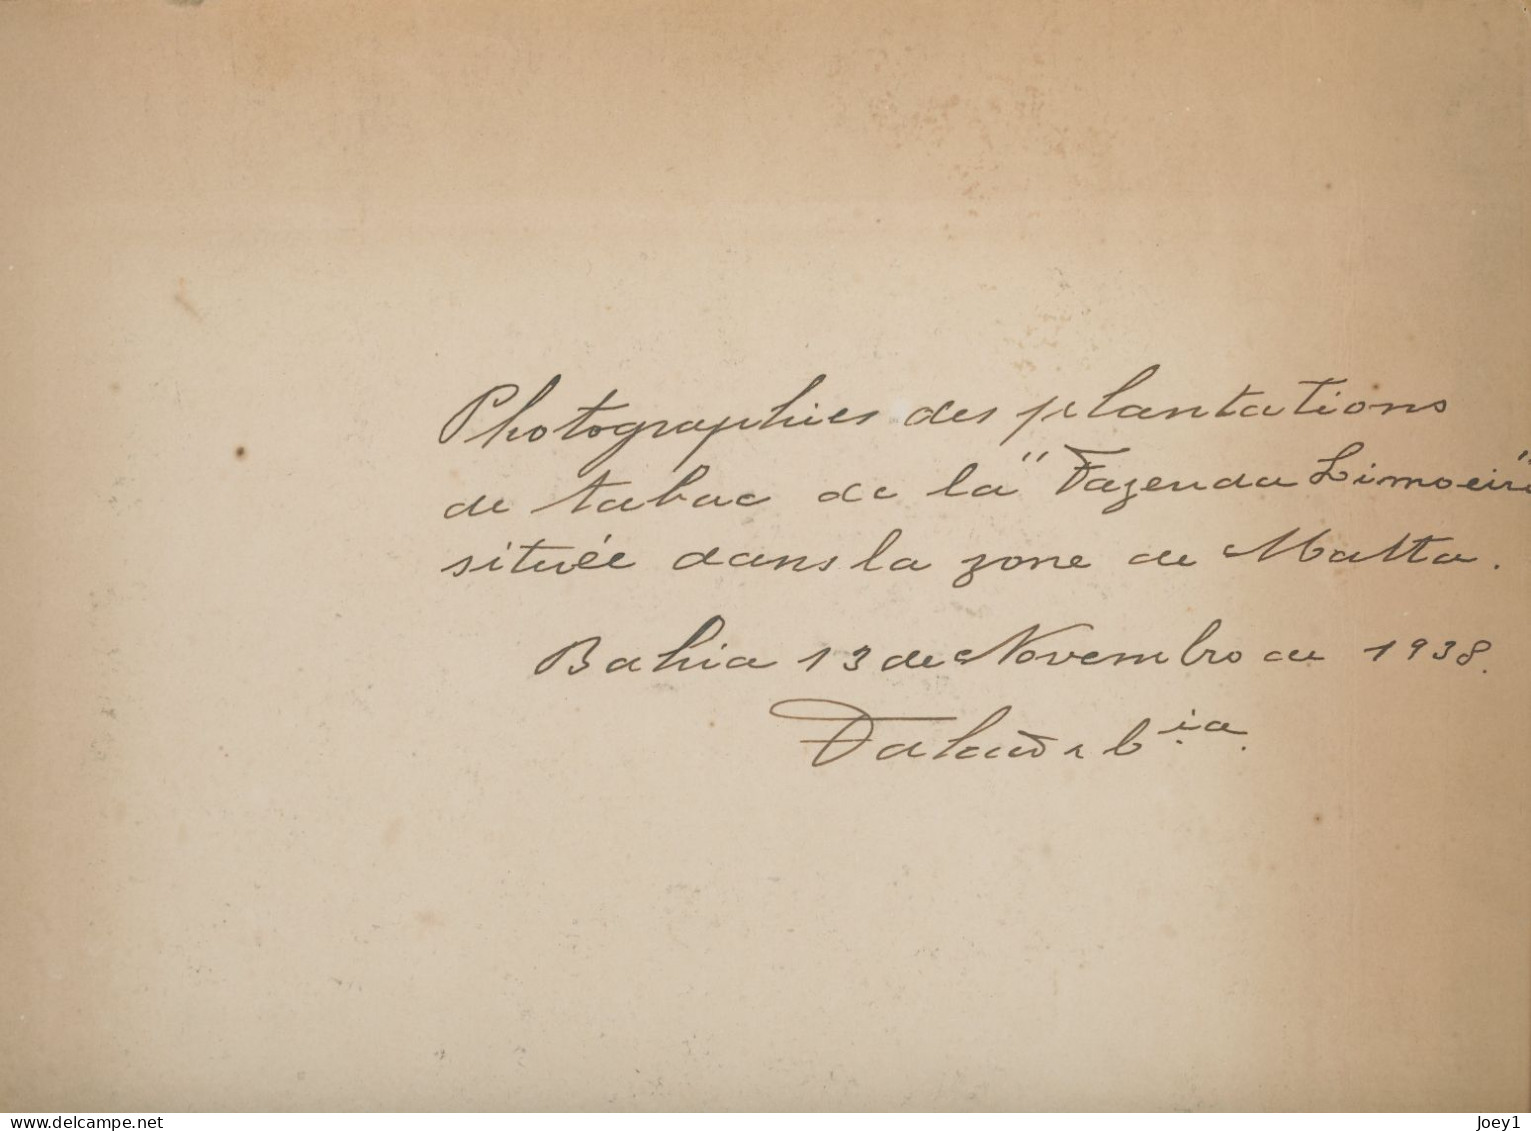 Photographies des plantations
de tabac de la "Fazenda Limoeiro"
située dans la zone de Matta.
Bahia 13 de Novembro de 1938.
& Cia.
www.delcampe.net
Joey1